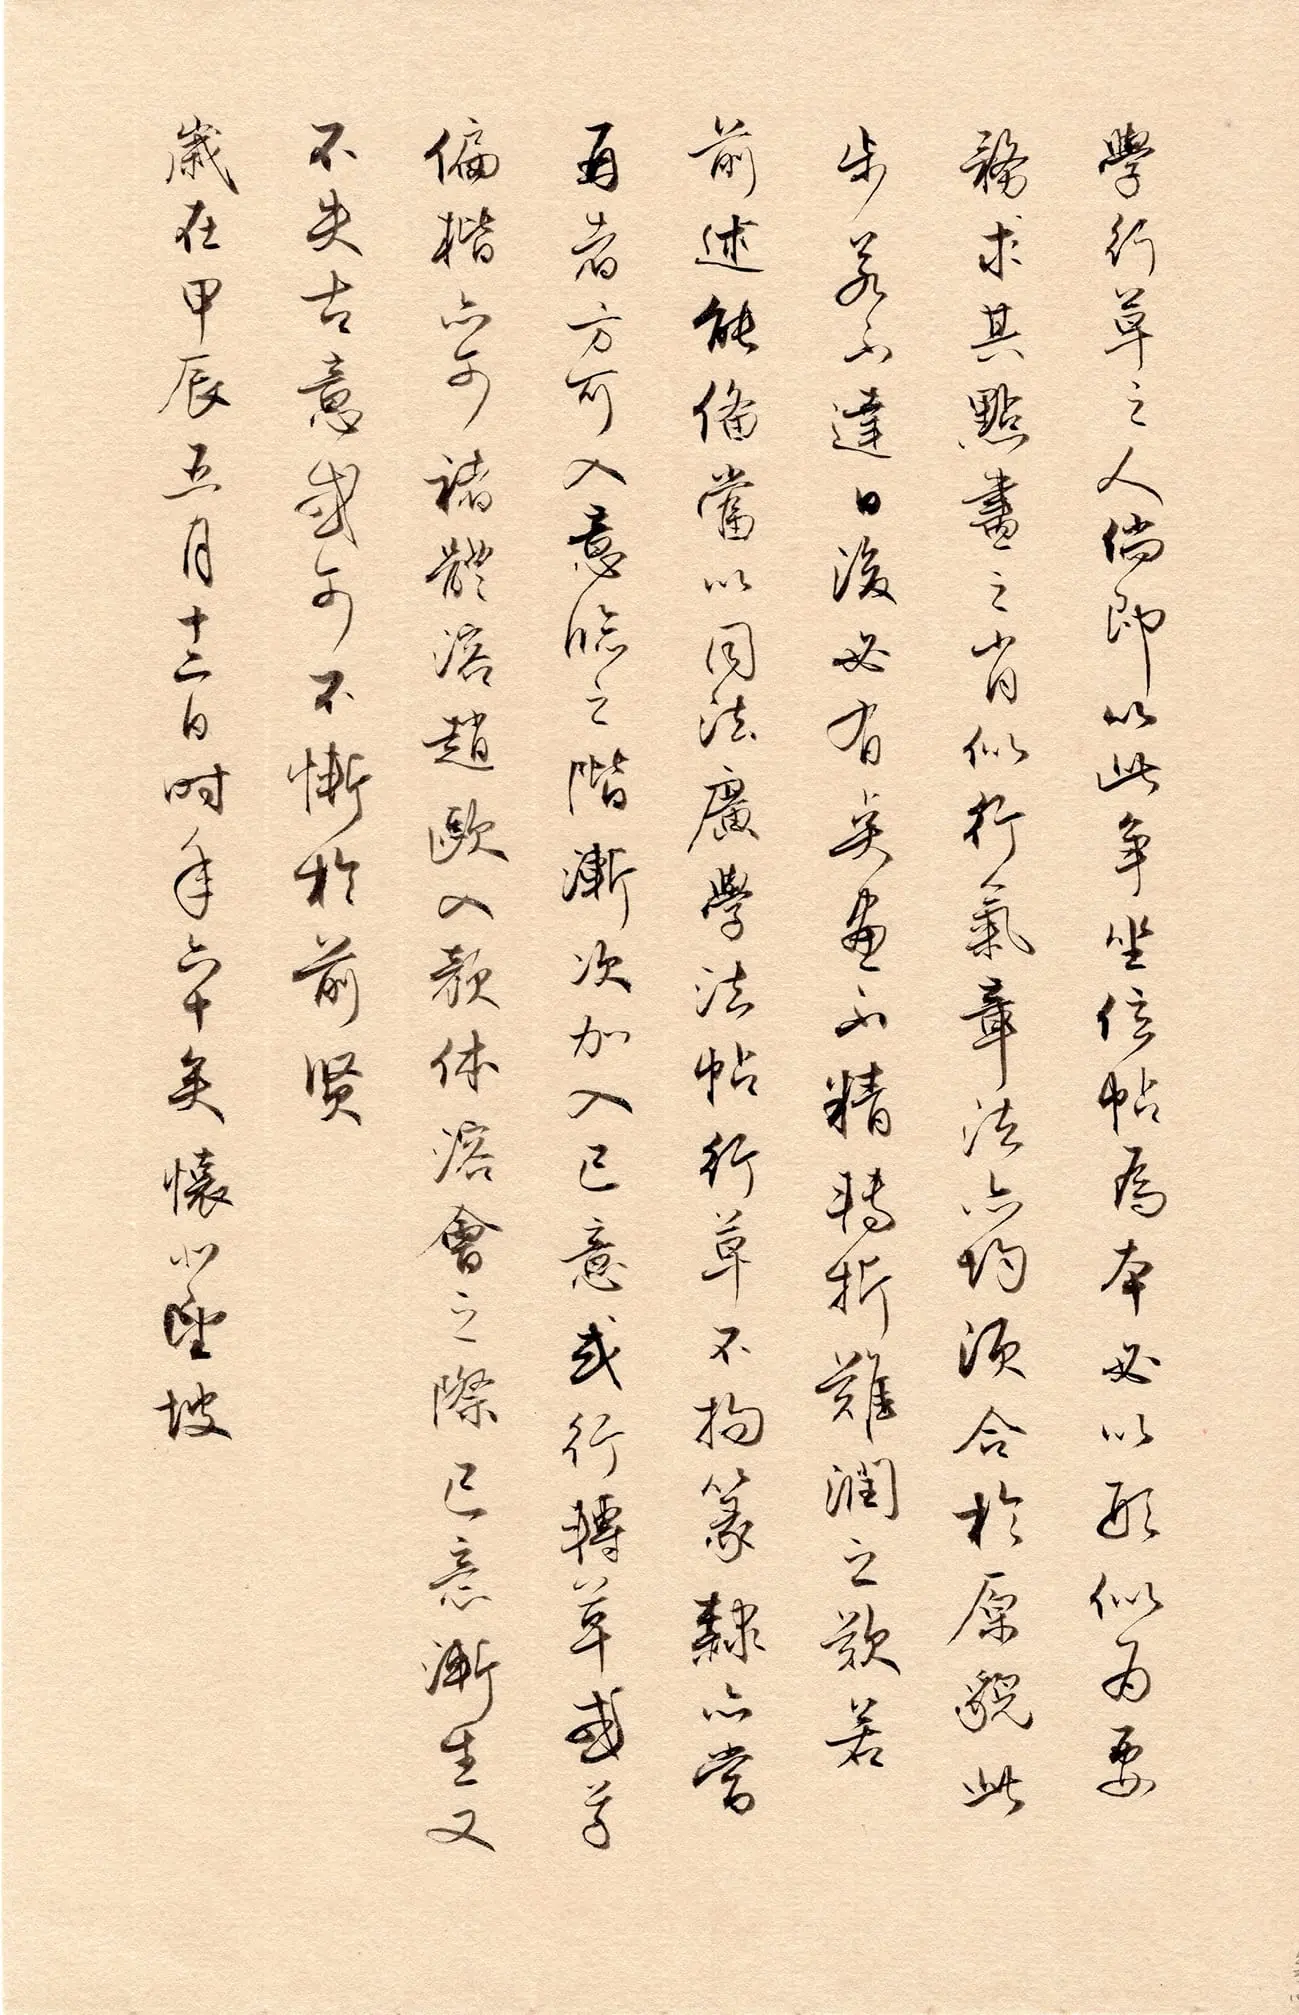 學行草之人倘即以此争坐位帖為本必以形似为要
務求其點畫之肖似行氣章法亦均須合於原貌此
步若不達日後必有点画不精轉折難润之歎若
前述能俻當以同法廣學法帖行草不拘篆隸亦當
再者方可入意临之階漸次加入己意或行轉草或草
偏楷亦可褚體溶趙歐入颜体溶會之際己意漸生又
不失古意或可不慚於前賢
歲在甲辰五月十二日时年六十矣懷
坡